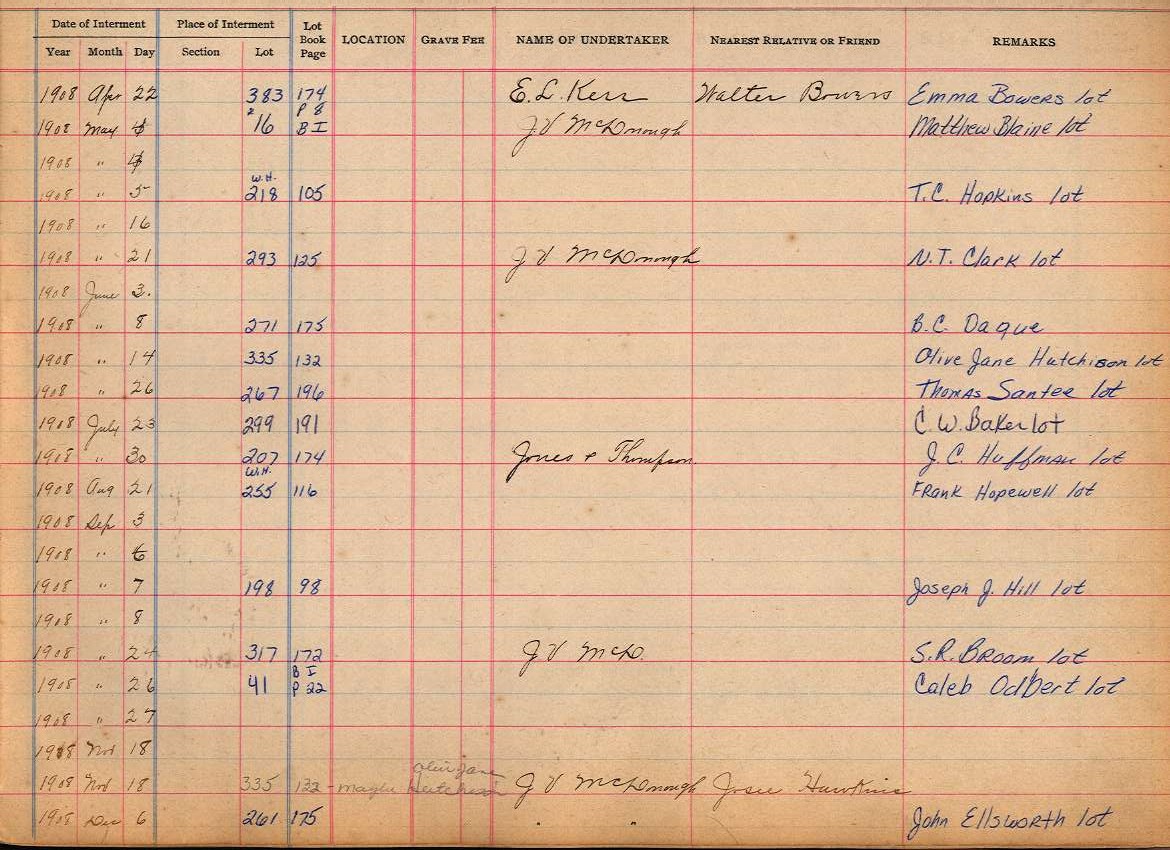 Date of Interment Place of Interment Lot Book Page LOCATION GRAVE FEE NAME OF UNDERTAKER NEAREST RELATIVE OR FRIEND REMARKS
Year Month Day Section Lot
1908 Apr 22 383 174 E. L. Kerr Walter Bowers Emma Bowers lot
1908 May 16 P 8 B I J V McDonough Matthew Blaine lot
1908 "
1908 " 5 W.H. 218 105 T.C. Hopkins lot
1908 " 16
1908 " 21 293 125 J V McDonough N.T. Clark lot
1908 June 3.
1908 " 8 271 175 B.C. Daque
1908 " 14 335 132 Olive Jane Hutchison lot
1908 " 26 267 196 Thomas Santee lot
1908 July 23 299 191 C.W. Baker lot
1908 " 30 207 174 Jones & Thompson. J.C. Huffman lot
1908 Aug 21 W.H. 255 116 Frank Hopewell lot
1908 Sep 3
1908 " 6
1908 " 7 198 98 Joseph J. Hill lot
1908 " 8
1908 " 24 317 172 J V McD. S.R. Broom lot
1908 " 26 41 B I P 22 Caleb Odbert lot
1908 " 27
1908 Nov 18
1908 Nov 18 335 132 - maybe Oliv Jane Hutchison J V McDonough Josie Hawkins
1908 Dec 6 261 175 " " John Ellsworth lot